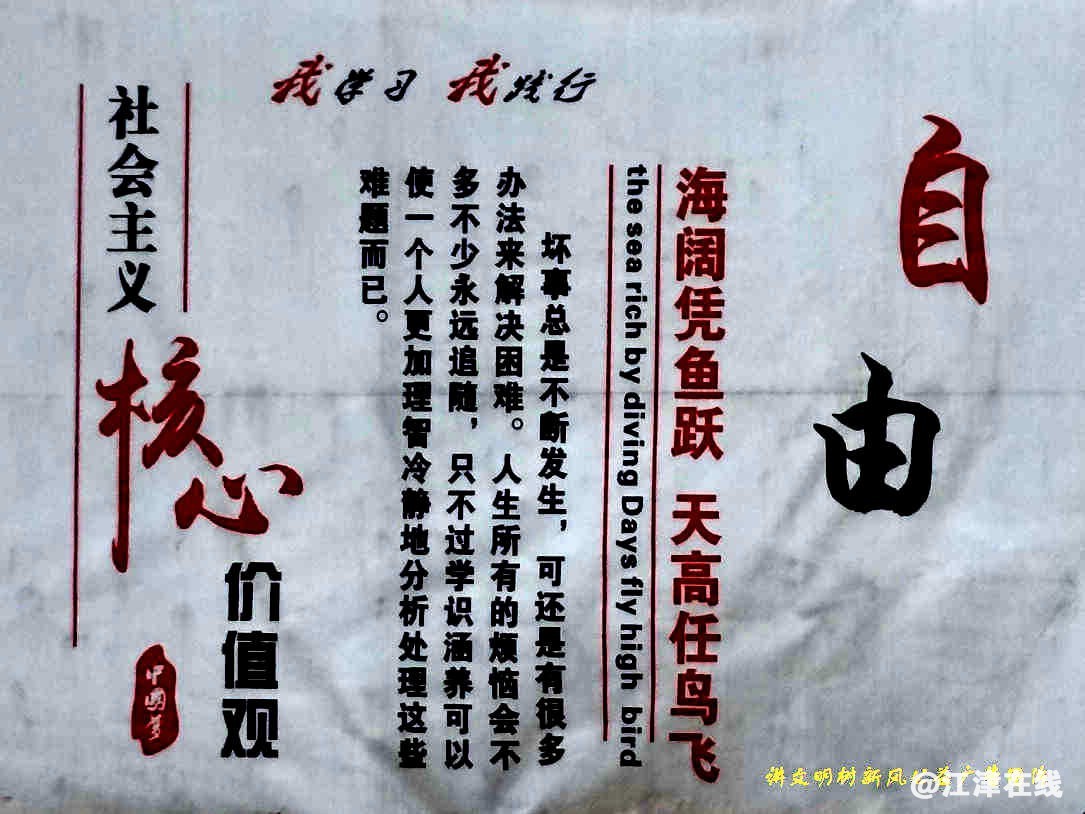 我学习 我践行
自由
海阔凭鱼跃 天高任鸟飞
the sea rich by diving Days fly high bird
坏事总是不断发生，可还是有很多
办法来解决困难。人生所有的烦恼会不
多不少永远追随，只不过学识涵养可以
使一个人更加理智冷静地分析处理这些
难题而已。
社会主义
核心
价值观
中国梦
讲文明树新风
@江津在线